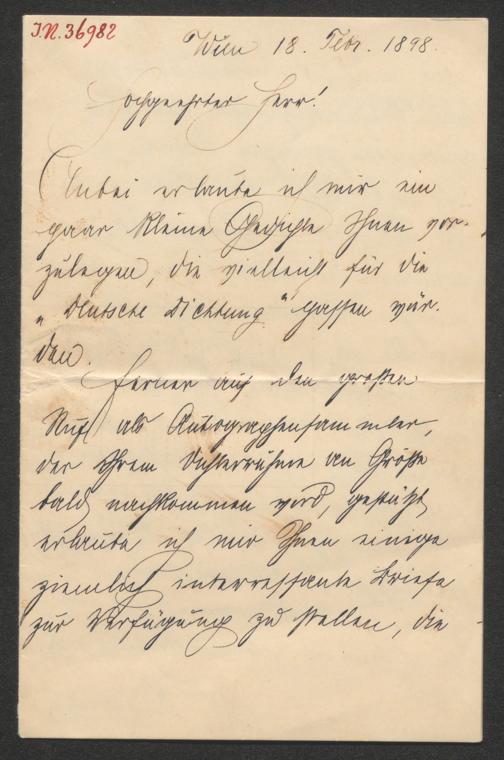 I.N. 36982
Wien 18. Febr. 1898.
Hochgeehrter Herr!
Anbei erlaube ich mir ein
paar kleine Gedichte Ihnen vor-
zulegen, die vielleicht für die
„Deutsche Dichtung" passen wür-
den.
Ferner auf den großen
Ruf als Autographensammler,
der Ihrem Dichterruhme an Größe
bald nachkommen wird, gestützt
erlaube ich mir Ihnen einige
ziemlich interessante Briefe
zur Verfügung zu stellen, die